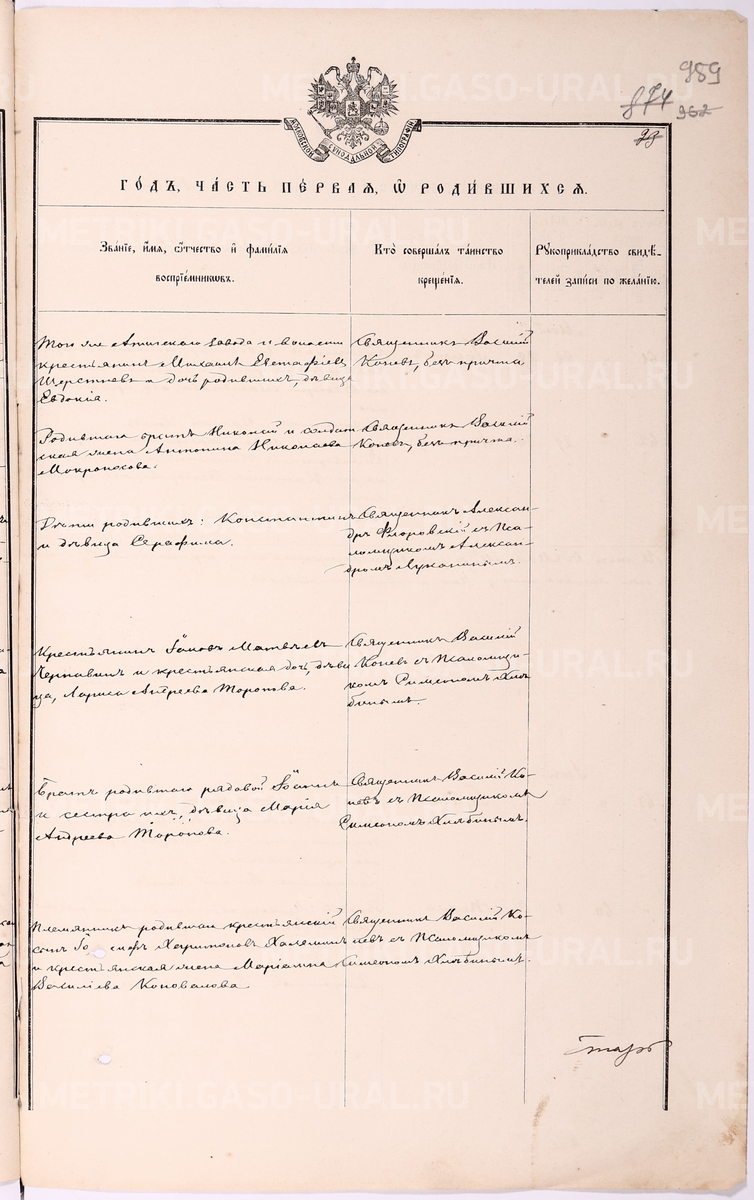 959
874
962
23
МОСКОВСКОЙ СѴНОДАЛЬНОЙ ТИПОГРАФІИ
ГО́ДЪ, ЧА́СТЬ ПЕ́РВАЯ, Ѽ РОДИ́ВШИХСЯ.
Зва́ніе, и́мя, ѻ҆́тчество и҆ фами́лія
воспріе́мникѡвъ.
Кто̀ соверша́лъ та́инство
креще́нія.
Рꙋкоприкла́дство свидѣ́-
телей за́писи по жела́нію.
Того же Ачитскаго завода и волости
крестьянинъ Михаилъ Евстафіевъ
Шерстневъ и дочь родившихъ, дѣвица
Евдокія.
Священникъ Василій
Коневъ, безъ причта.
Родившаго братъ Николай и солдат
ская жена Антонина Николаева
Мокроносова.
Священникъ Василій
Коневъ, безъ причта.
Дѣти родившихъ: Константинъ
и дѣвица Серафима.
Священникъ Алексан-
дръ Флоровскій съ Пса-
ломщикомъ Алексан-
дромъ Луканинымъ.
Крестьянинъ Іаковъ Матвѣевъ
Чернавинъ и крестьянская дочь, дѣви
ца, Лариса Андреева Торопова.
Священникъ Василій
Коневъ съ Псаломщи-
комъ Симеономъ Хлѣ
бинымъ.
Братъ родившаго рядовой Іоаннъ
и сестра ихъ, дѣвица Марія
Андреева Торопова.
Священникъ Василій Ко-
невъ съ Псаломщикомъ
Симеономъ Хлѣбинымъ.
Племянникъ родившаи крестьянскій
сынъ Харитоновъ
и крестьянская жена Маріамна
Василіева Коновалова
Священникъ Василій Ко-
невъ съ Псаломщикомъ
Симеономъ Хлѣбинымъ.
METRIKI.GASO-URAL.RU